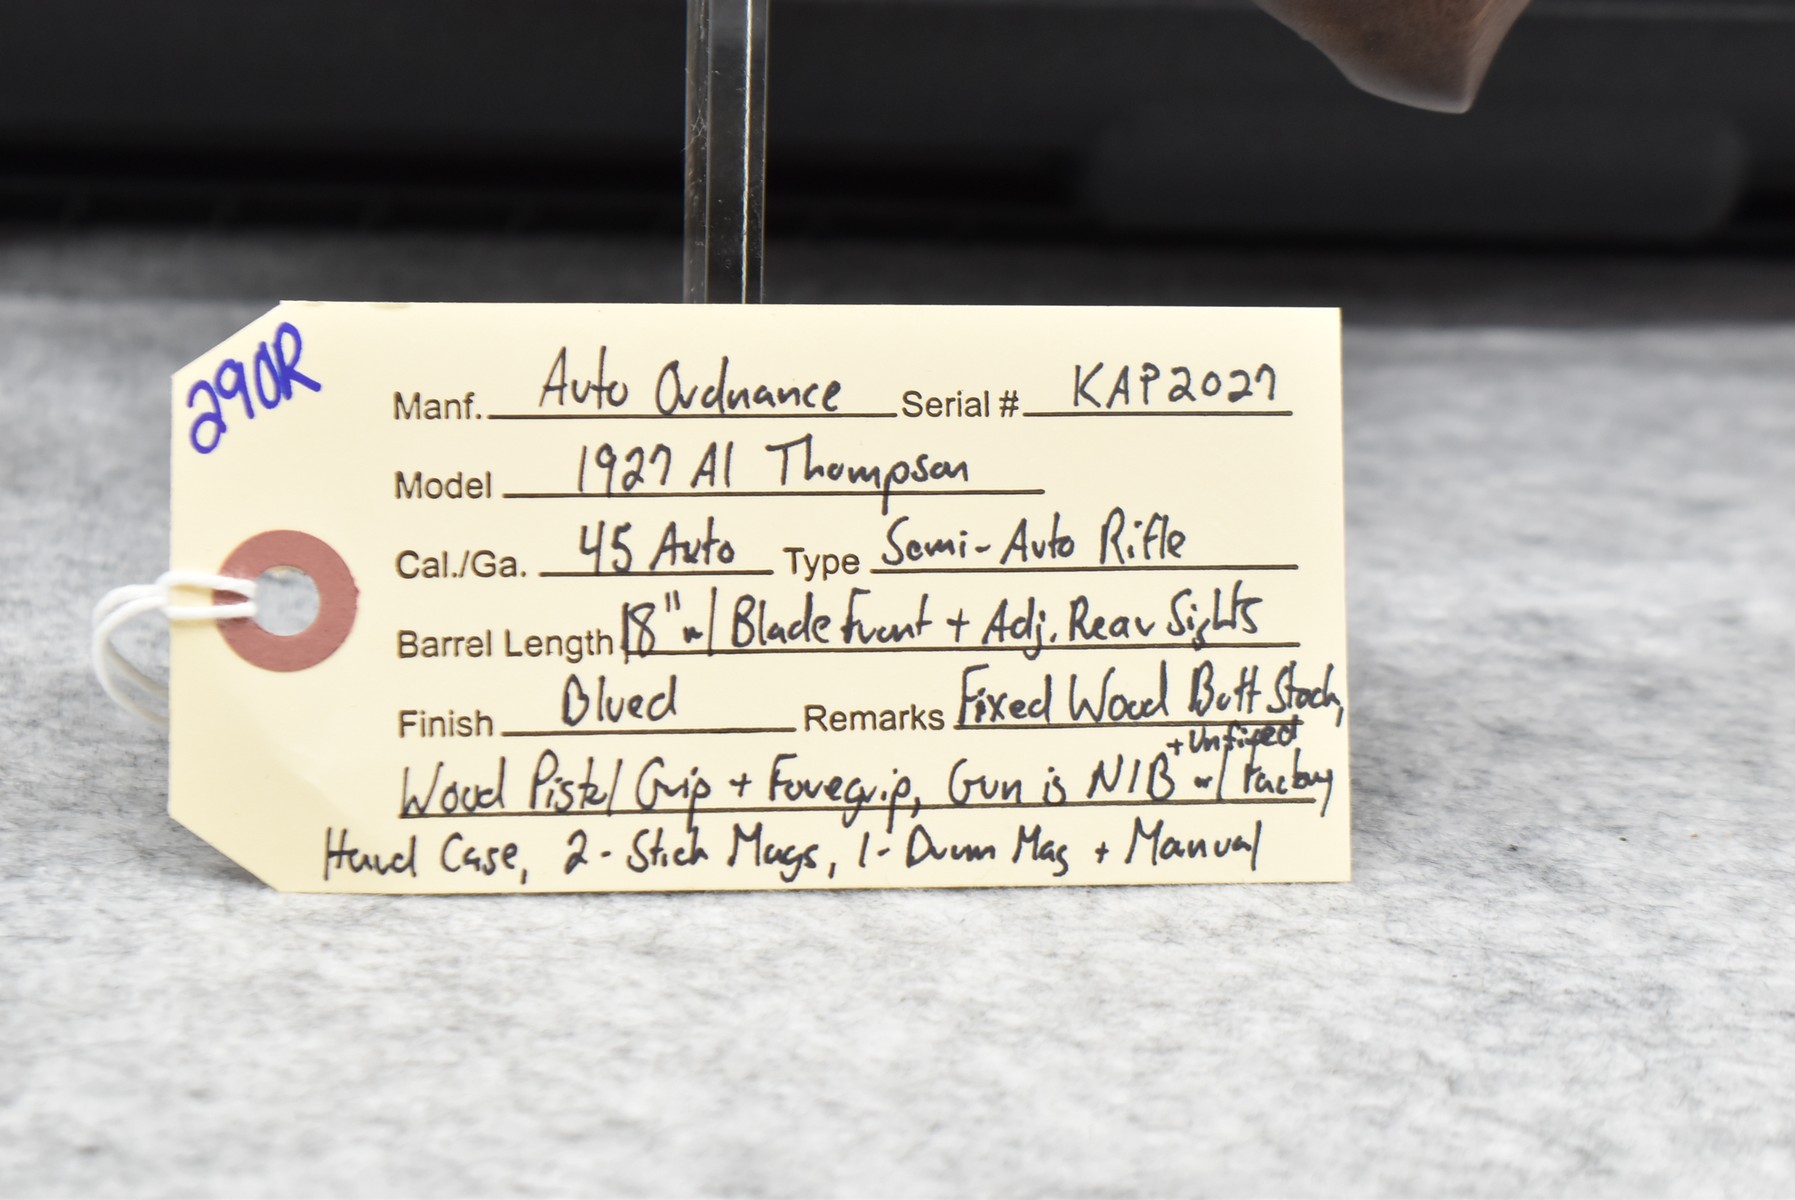 290R
Manf. Auto Ordnance Serial # KAP2027
Model 1927 A1 Thompson
Cal./Ga. 45 Auto Type Semi-Auto Rifle
Barrel Length 18" w/ Blade Front + Adj. Rear Sights
Finish Blued Remarks Fixed Wood Butt Stock,
+ Unfired
Wood Pistol Grip + Foregrip, Gun is NIB w/ Factory
Hard Case, 2 - Stick Mags, 1 - Drum Mag + Manual